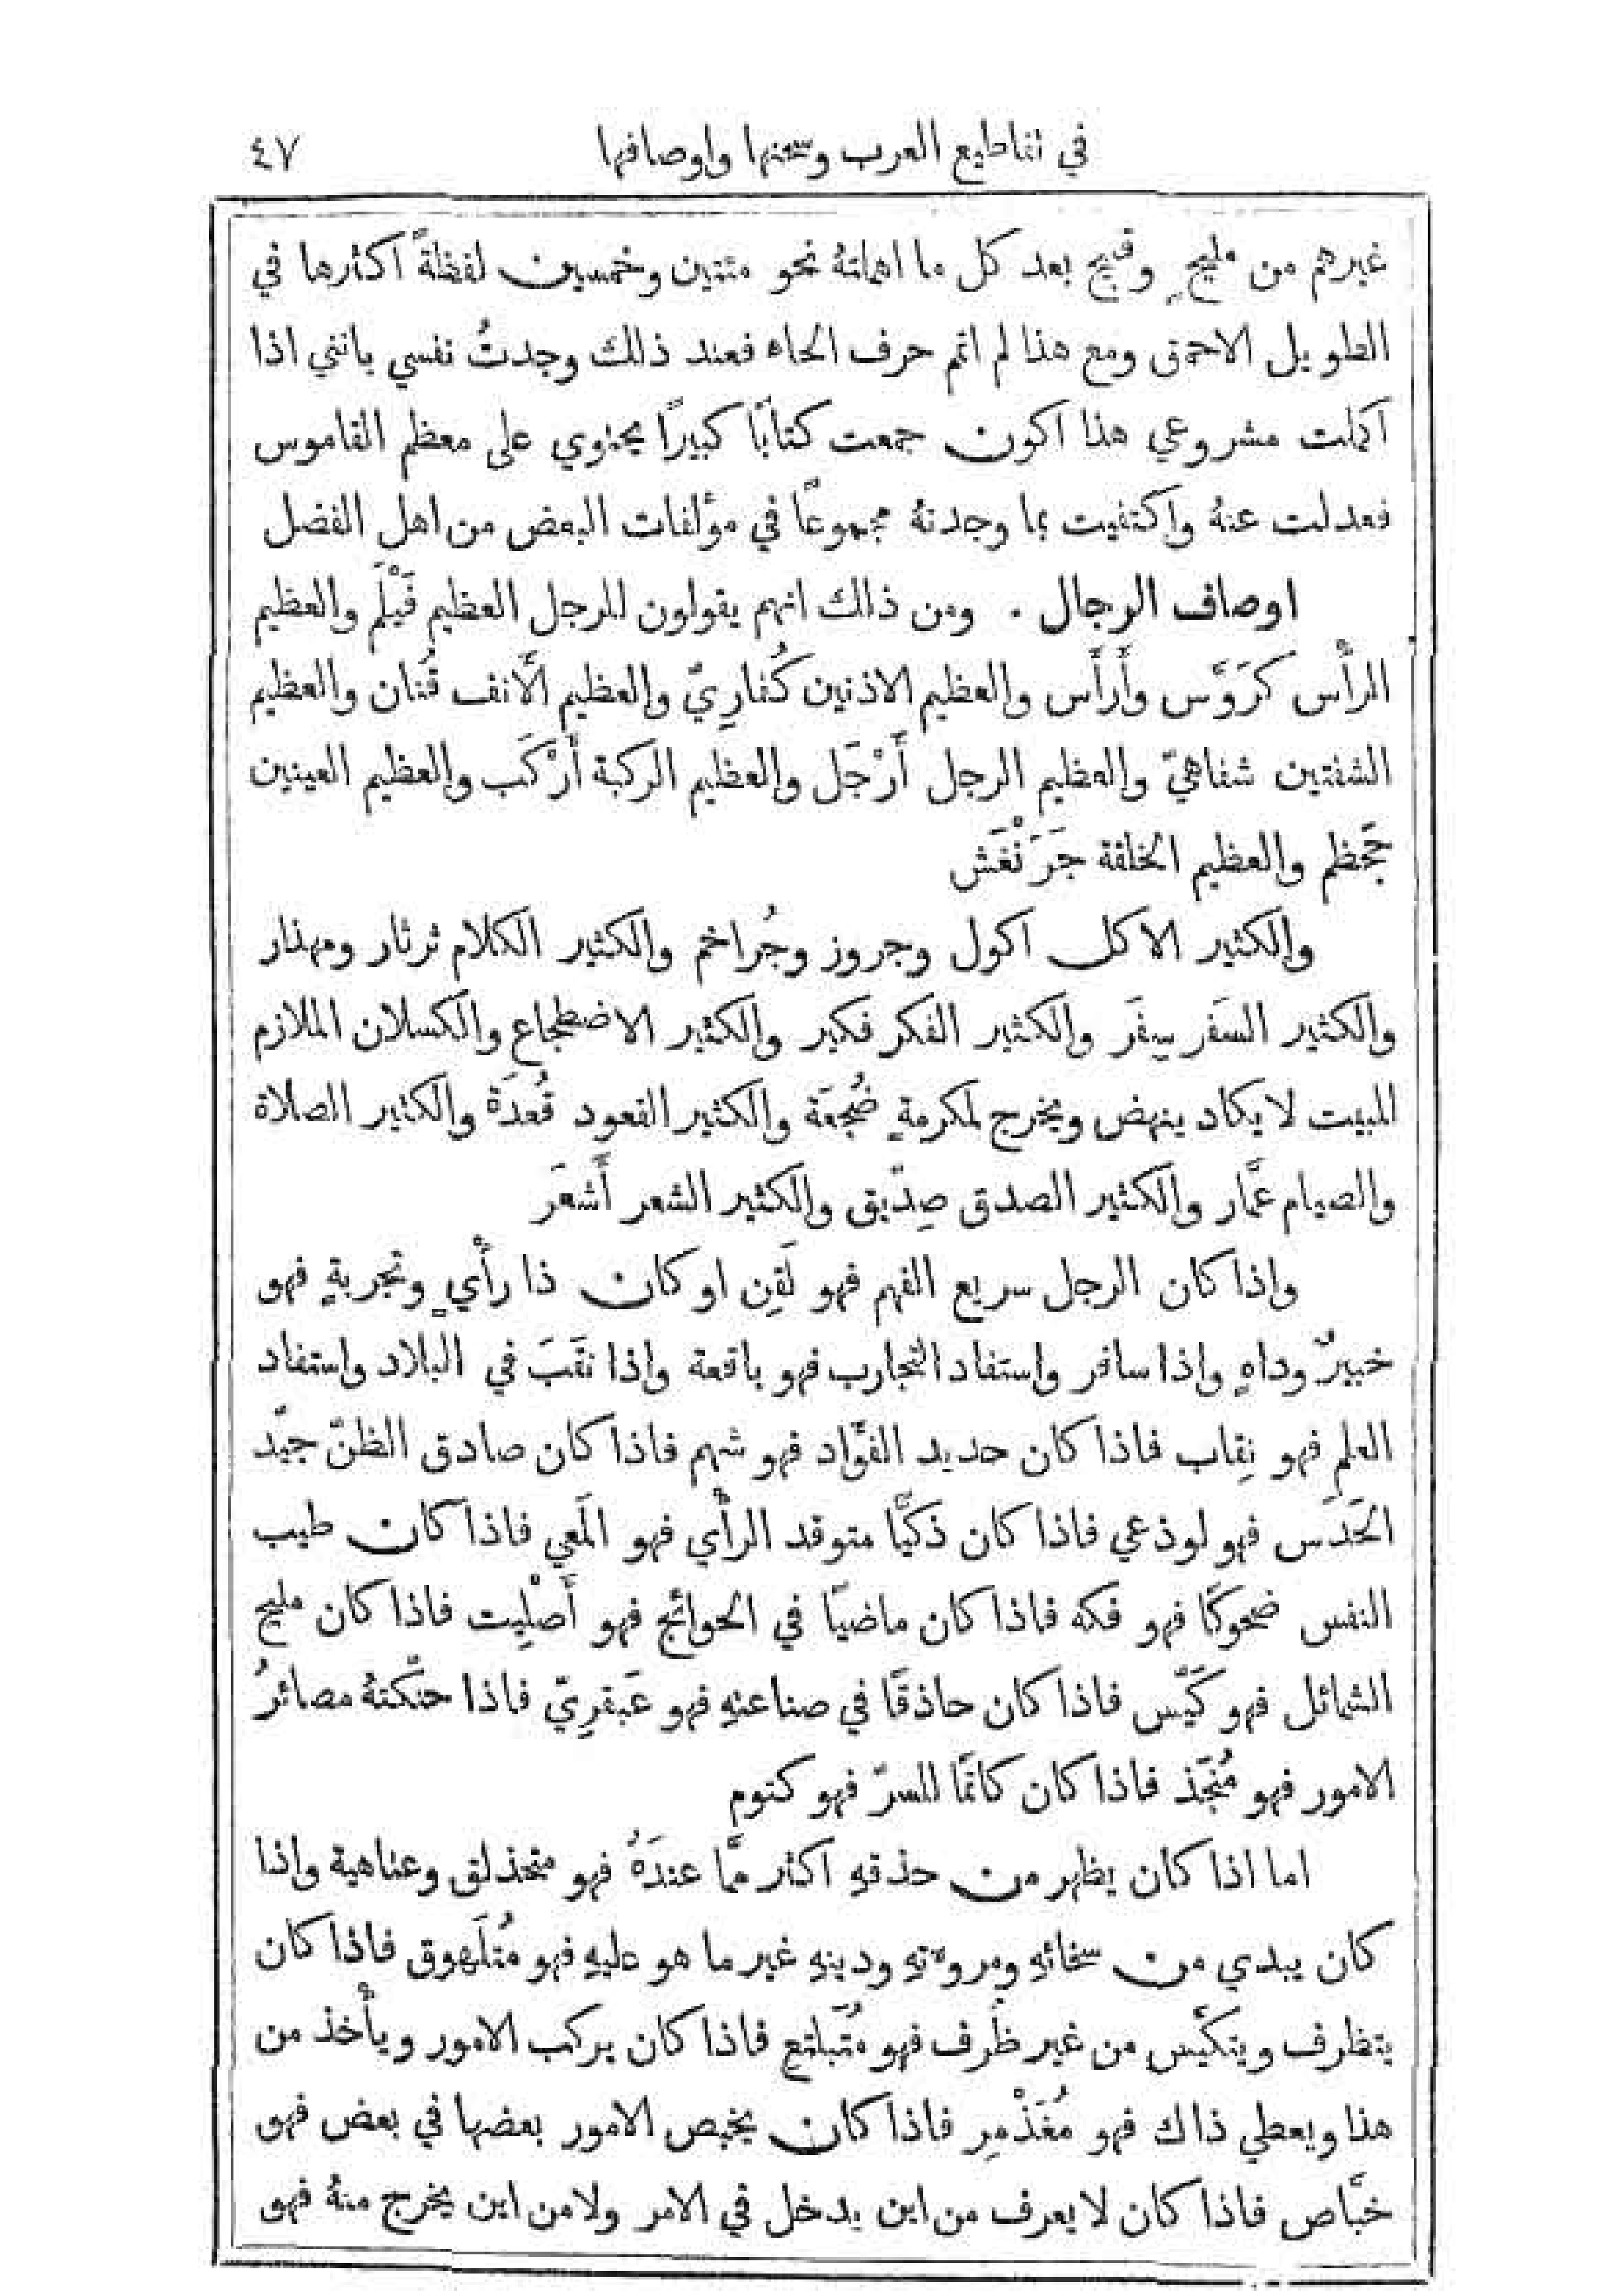 في تقاطيع العرب وسحنها واوصافها ٤٧
غيرهم من مليحٍ وقبيحٍ بعد كل ما اهملتهُ نحو مئتين وخمسين لفظةً اكثرها في
الطويل الاحمق ومع هذا لم اتم حرف الحاء فعند ذلك وجدتُ نفسي بانني اذا
اكملت مشروعي هذا اكون جمعت كتابًا كبيرًا يحتوي على معظم القاموس
فعدلت عنهُ واكتفيت بما وجدتهُ مجموعًا في مؤلفات البعض من اهل الفضل
اوصاف الرجال . ومن ذلك انهم يقولون للرجل العظيم فَيْلَم والعظيم
الرأْس كرَوَّس وأَرأَس والعظيم الاذنين كُفارِيّ والعظيم الأَنف قُنان والعظيم
الشفتين شفاهيّ والعظيم الرجل أَرْجَل والعظيم الركبة أَرْكَب والعظيم العينين
جَحظم والعظيم الخلقة جَرَنْفَش
والكثير الاكل اكول وجروز وجُراضم والكثير الكلام ثرثار ومهذار
والكثير السَفر سِفَر والكثير الفكر فكير والكثير الاضطجاع والكسلان الملازم
البيت لا يكاد ينهض ويخرج لمكرمةٍ ضُجعَة والكثير القعود قُعدَة والكثير الصلاة
والصيام عَمَّار والكثير الصدق صِدّيق والكثير الشعر أَشعَر
واذا كان الرجل سريع الفهم فهو لَقِن او كان ذا رأْيٍ وتجربةٍ فهو
خبيرٌ وداهٍ واذا سافر واستفاد التجارب فهو باقعة واذا نقَّبَ في البلاد واستفاد
العلم فهو نِقاب فاذا كان حديد الفؤَاد فهو شهم فاذا كان صادق الظنّ جيّد
الحَدَس فهو لوذعي فاذا كان ذكيًّا متوقد الرأْي فهو المَعي فاذا كان طيب
النفس ضحوكًا فهو فكه فاذا كان ماضيًا في الحوائج فهو أَصْلِيت فاذا كان مليح
الشمائل فهو كَيّس فاذا كان حاذقًا في صناعتهِ فهو عَبقرِيّ فاذا حنّكتهُ مصائرُ
الامور فهو مُنجَّذ فاذا كان كاتمًا للسرّ فهو كتوم
اما اذا كان يظهر من حذقهِ اكثر ممَّا عندَهُ فهو متحذلق وعتاهية واذا
كان يبدي من سخائهِ ومروءتهِ ودينهِ غير ما هو عليهِ فهو مُتلَهوق فاذا كان
يتظرف ويتكيَّس من غير ظَرف فهو مُتَبلتع فاذا كان يركب الامور ويأْخذ من
هذا ويعطي ذاك فهو مُغَذْمِر فاذا كان يخبص الامور بعضها في بعض فهو
خبَّاص فاذا كان لا يعرف من اين يدخل في الامر ولا من اين يخرج منهُ فهو